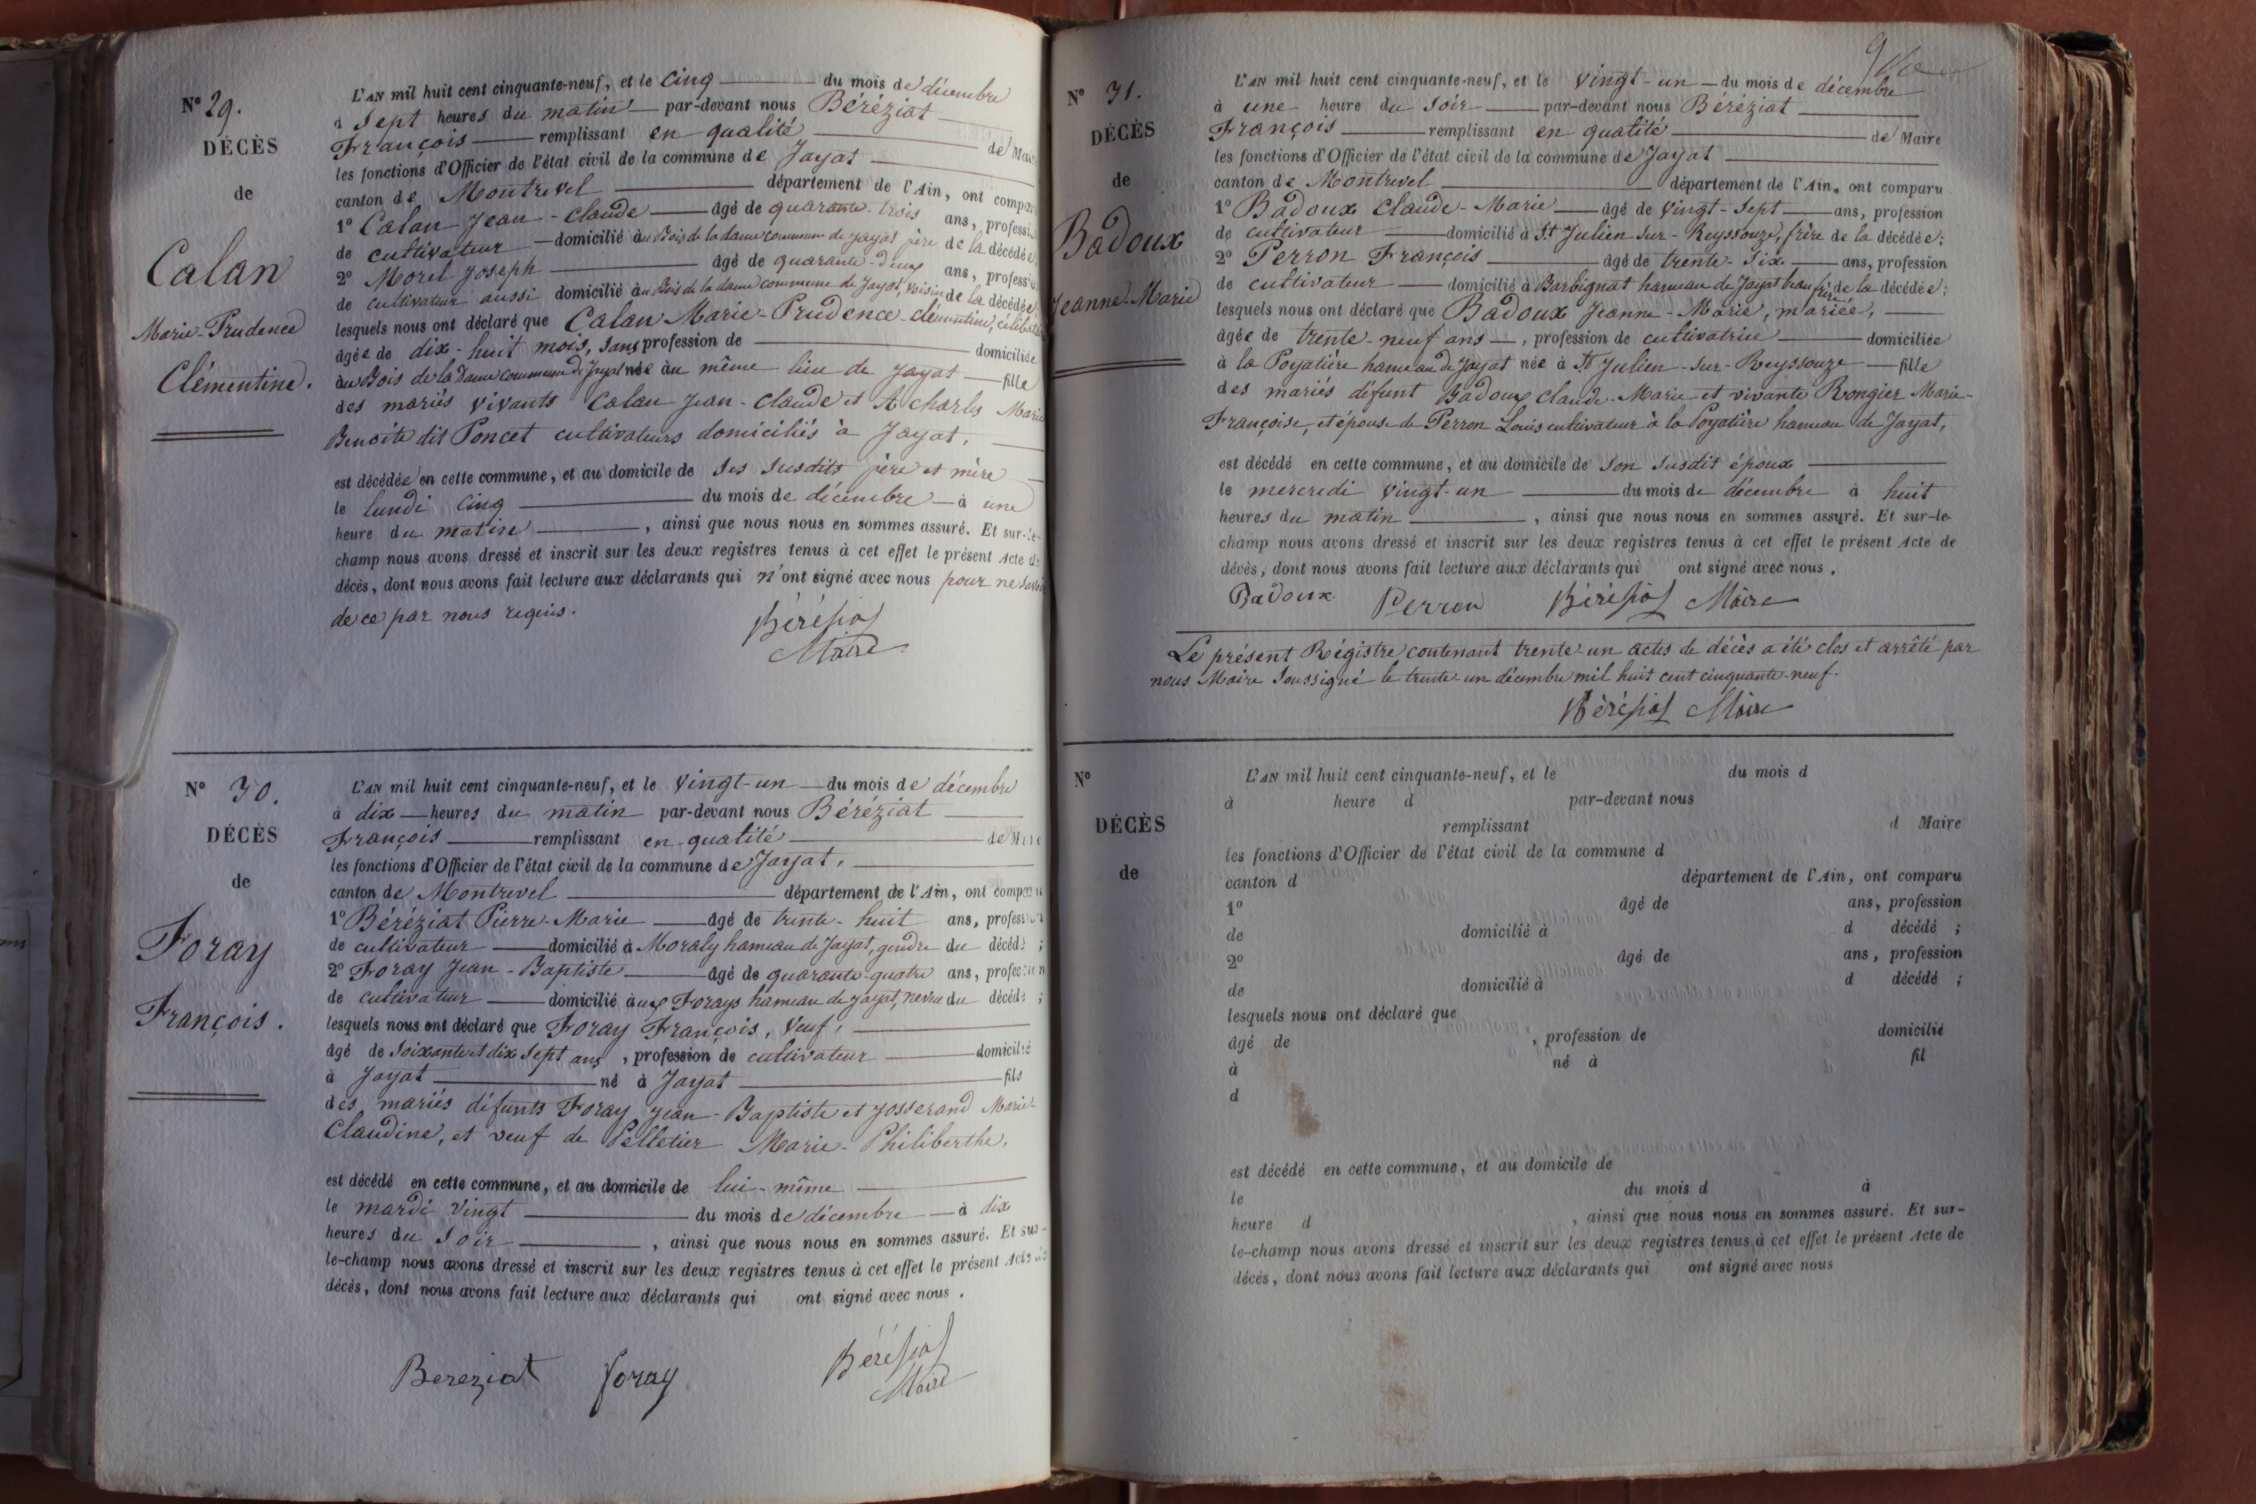 N° 29.
DÉCÈS
de
Calan
Marie-Prudence
Clémentine.
L'AN mil huit cent cinquante-neuf, et le cinq du mois de décembre
à sept heures du matin par-devant nous Béréziat
François remplissant en qualité de Maire
les fonctions d'Officier de l'état civil de la commune de Jayat
canton de Montrevel département de l'Ain, ont comparu
1° Calan Jean-Claude âgé de quarante-trois ans, profession
de cultivateur domicilié au Bois de la dame commune de Jayat père de la décédée
2° Morel Joseph âgé de quarante-deux ans, profession
de cultivateur aussi domicilié au Bois de la dame commune de Jayat, voisin de la décédée
lesquels nous ont déclaré que Calan Marie-Prudence clémentine, célibataire
âgée de dix-huit mois, sans profession de domiciliée
au Bois de la Dame commune de Jayat née au même lieu de Jayat fille
des mariés vivants Calan Jean-claude et A charles Marie
Benoite dit Poncet cultivateurs domiciliés à Jayat,
est décédée en cette commune, et au domicile de ses susdits père et mère
le lundi cinq du mois de décembre à une
heure du matin , ainsi que nous nous en sommes assuré. Et sur-le-
champ nous avons dressé et inscrit sur les deux registres tenus à cet effet le présent Acte de
décès, dont nous avons fait lecture aux déclarants qui n'ont signé avec nous pour ne savoir
de ce par nous requis.
Béréziat
Maire
N° 30.
DÉCÈS
de
Foray
François.
L'AN mil huit cent cinquante-neuf, et le vingt-un du mois de décembre
à dix heures du matin par-devant nous Béréziat
François remplissant en qualité de Maire
les fonctions d'Officier de l'état civil de la commune de Jayat,
canton de Montrevel département de l'Ain, ont comparu
1° Béréziat Pierre-Marie âgé de trente-huit ans, profession
de cultivateur domicilié à Moraly hameau de Jayat, gendre du décédé ;
2° Foray Jean-Baptiste âgé de quarante-quatre ans, profession
de cultivateur domicilié aux Forays hameau de Jayat, neveu du décédé ;
lesquels nous ont déclaré que Foray François, veuf,
âgé de soixante et dix sept ans , profession de cultivateur domicilié
à Jayat né à Jayat fils
des mariés défunts Foray Jean-Baptiste et Josserand Marie-
Claudine, et veuf de Pelletier Marie-Philiberthe,
est décédé en cette commune, et au domicile de lui-même
le mardi vingt du mois de décembre à dix
heures du soir , ainsi que nous nous en sommes assuré. Et sur-
le-champ nous avons dressé et inscrit sur les deux registres tenus à cet effet le présent Acte de
décès, dont nous avons fait lecture aux déclarants qui ont signé avec nous .
Bereziat Foray Béréziat
Maire
N° 31.
DÉCÈS
de
Badoux
Jeanne-Marie
L'AN mil huit cent cinquante-neuf, et le vingt-un du mois de décembre
à une heure du soir par-devant nous Béréziat
François remplissant en qualité de Maire
les fonctions d'Officier de l'état civil de la commune de Jayat
canton de Montrevel département de l'Ain, ont comparu
1° Badoux Claude-Marie âgé de vingt-sept ans, profession
de cultivateur domicilié à St Julien-sur-Reyssouze, frère de la décédée ;
2° Perron François âgé de trente-six ans, profession
de cultivateur domicilié à Barbignat hameau de Jayat beau frère de la décédée ;
lesquels nous ont déclaré que Badoux Jeanne-Marie, mariée,
âgée de trente-neuf ans , profession de cultivatrice domiciliée
à la Poyatière hameau de Jayat née à St Julien-sur-Reyssouze fille
des mariés défunt Badoux claude-Marie et vivante Rongier Marie-
Françoise, et épouse de Perron Louis cultivateur à la Poyatière hameau de Jayat,
est décédé en cette commune, et au domicile de son susdit époux
le mercredi vingt-un du mois de décembre à huit
heures du matin , ainsi que nous nous en sommes assuré. Et sur-le-
champ nous avons dressé et inscrit sur les deux registres tenus à cet effet le présent Acte de
décès, dont nous avons fait lecture aux déclarants qui ont signé avec nous .
Badoux Perron Béréziat Maire
Le présent Régistre contenant trente-un actes de décès a été clos et arrêté par
nous Maire soussigné le trente-un décembre mil huit cent cinquante-neuf.
Béréziat Maire
N°
DÉCÈS
de
L'AN mil huit cent cinquante-neuf, et le du mois d
à heure d par-devant nous
remplissant d Maire
les fonctions d'Officier de l'état civil de la commune d
canton d département de l'Ain, ont comparu
1° âgé de ans, profession
de domicilié à d décédé ;
2° âgé de ans, profession
de domicilié à d décédé ;
lesquels nous ont déclaré que
âgé de , profession de domicilié
à né à fil
d
est décédé en cette commune, et au domicile de
le du mois d à
heure d , ainsi que nous nous en sommes assuré. Et sur-
le-champ nous avons dressé et inscrit sur les deux registres tenus à cet effet le présent Acte de
décès, dont nous avons fait lecture aux déclarants qui ont signé avec nous